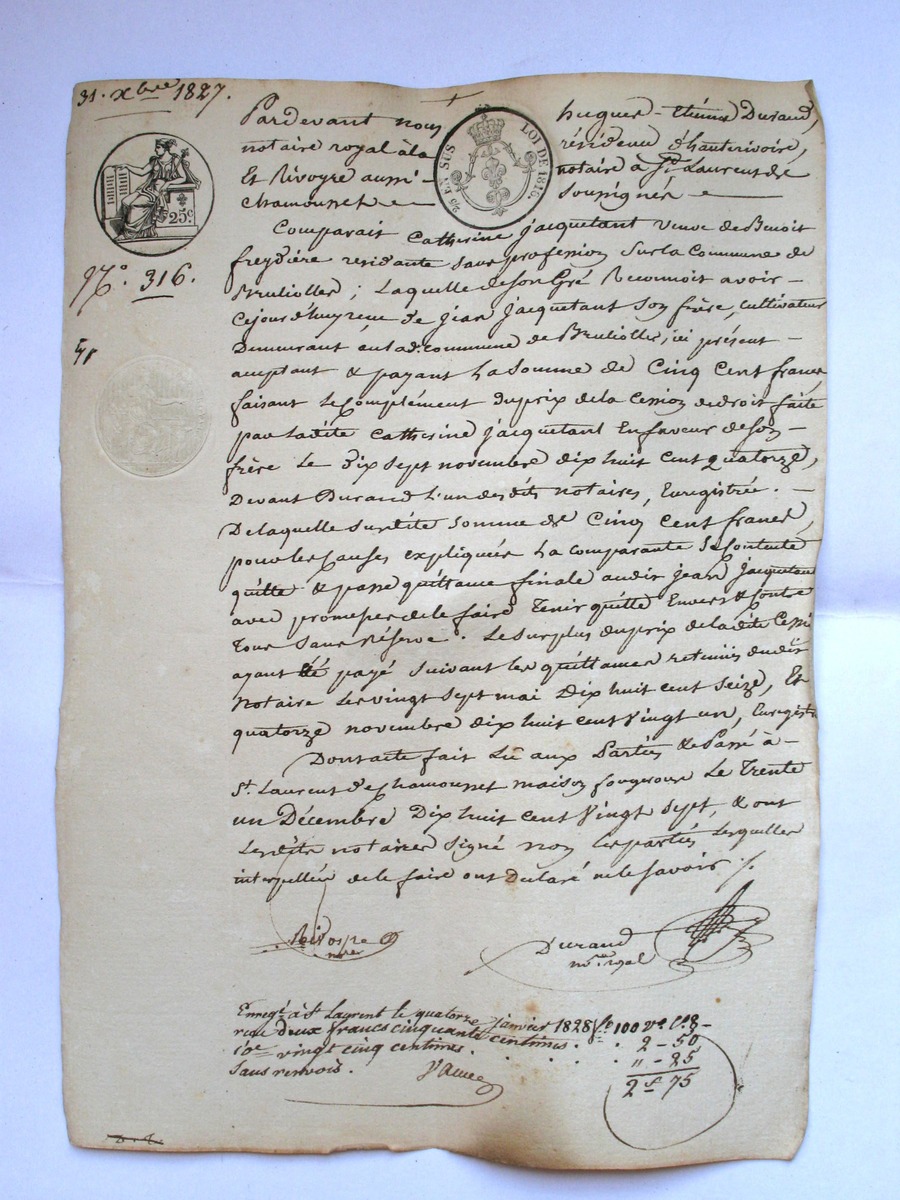 31. Xbre 1827.
Pardevant nous hugues-Etienne Durand,
notaire royal à la résidence d'hauterivoire,
Et Rivoyre aussi notaire à St Laurent de
Chamousset soussignés
⅕ EN SUS LOI DE 1816.
25c.
N.° 316.
Comparait Catherine jacquetant veuve de Benoit
freydière residante sans profession sur la Commune de
Bruliolles; Laquelle de son Gré Reconnoit avoir
cejourd'huy reçu de jean jacquetant son frère, cultivateur
Demeurant en lad. commune de Bruliolles, ici présent
acceptant & payant La Somme de Cinq Cent francs
faisant Le Complément du prix de la Cession de droit faite
par Ladite Catherine jacquetant En faveur de son
frère Le dix sept novembre dix huit cent quatorze,
Devant Durand L'un desdits notaires, Enregistrée.
De laquelle Susdite somme de Cinq Cent francs,
pour les Causes expliquées La comparante Se Contente
quitte & passe quittance finale audit jean jacquetant
avec promesse de le faire Tenir quitte Envers & Contre
Tous Sans réserve. Le surplus du prix de ladite Cession
ayant été payé Suivant les quittances retenues dudit
Notaire Les vingt sept mai Dix huit cent Seize, Et
quatorze novembre dix huit cent vingt un, Enregistré
Dont acte fait Lu aux Parties & Passé à
St. Laurent de Chamousset maison fougerouse Le Trente
un Décembre Dix huit cent Vingt sept, & ont
Lesdits notaires Signé non les parties Lesquelles
interpellées de le faire ont Déclaré ne le Savoir ./.
Rivoyre
notre
Durand
nore royal
Enregt à St Laurent le quatorze janvier 1828 fo 100 vo C. 8
reçu deux francs cinquante centimes. 2 - 50
10e vingt cinq centimes. " - 25
Sans renvois. 2f 75